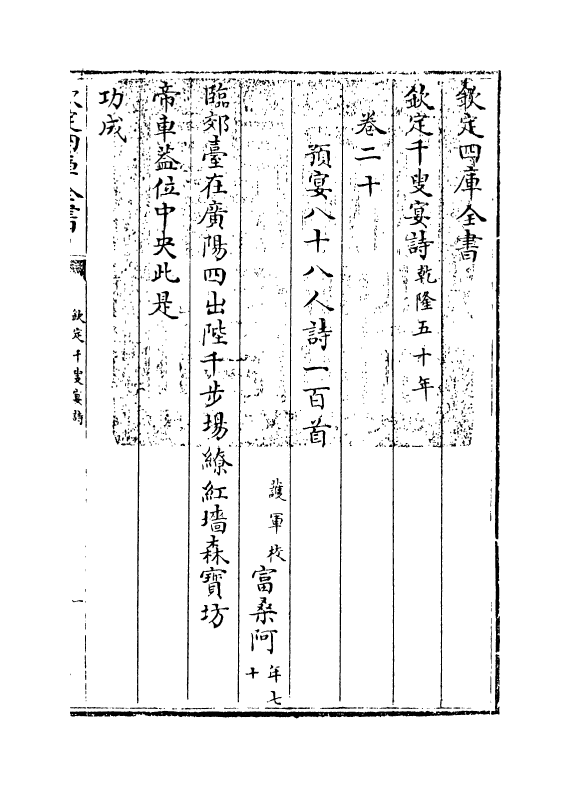 欽定四庫全書
欽定千叟宴詩乾隆五十年
卷二十
預宴八十八人詩一百首
護軍校富桑阿年七十
臨郊臺在廣陽四出陛千步場繚紅墻森寶坊
帝車蓋位中央此是
功成
欽定四庫全書
欽定千叟宴詩
一